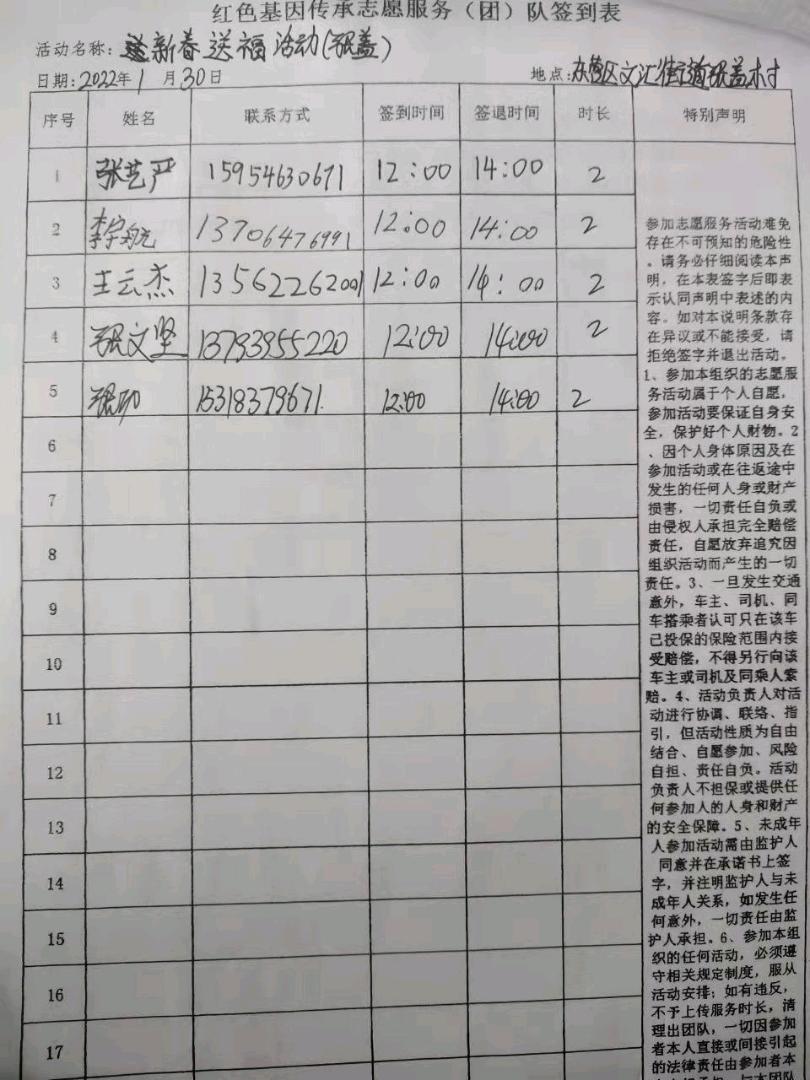 红色基因传承志愿服务（团）队签到表
活动名称：送新春送福活动(张盖)
日期：2022年1月30日 地点：东营区文汇街道张盖村
序号 姓名 联系方式 签到时间 签退时间 时长 特别声明
1 张艺严 15954630671 12:00 14:00 2
2 李宇航 13706476991 12:00 14:00 2
3 王云杰 13562262001 12:00 14:00 2
4 张文坚 13793955220 12:00 14:00 2
5 15318379671 12:00 14:00 2
6
7
8
9
10
11
12
13
14
15
16
17
参加志愿服务活动难免
存在不可预知的危险性
。请务必仔细阅读本声
明，在本表签字后即表
示认同声明中表述的内
容。如对本说明条款存
在异议或不能接受，请
拒绝签字并退出活动。
1、参加本组织的志愿服
务活动属于个人自愿，
参加活动要保证自身安
全，保护好个人财物。2
、因个人身体原因及在
参加活动或在往返途中
发生的任何人身或财产
损害，一切责任自负或
由侵权人承担完全赔偿
责任，自愿放弃追究因
组织活动而产生的一切
责任。3、一旦发生交通
意外，车主、司机、同
车搭乘者认可只在该车
已投保的保险范围内接
受赔偿，不得另行向该
车主或司机及同乘人索
赔。4、活动负责人对活
动进行协调、联络、指
引，但活动性质为自由
结合、自愿参加、风险
自担、责任自负。活动
负责人不担保或提供任
何参加人的人身和财产
的安全保障。5、未成年
人参加活动需由监护人
同意并在承诺书上签
字，并注明监护人与未
成年人关系，如发生任
何意外，一切责任由监
护人承担。6、参加本组
织的任何活动，必须遵
守相关规定制度，服从
活动安排；如有违反，
不予上传服务时长，清
理出团队，一切因参加
者本人直接或间接引起
的法律责任由参加者本